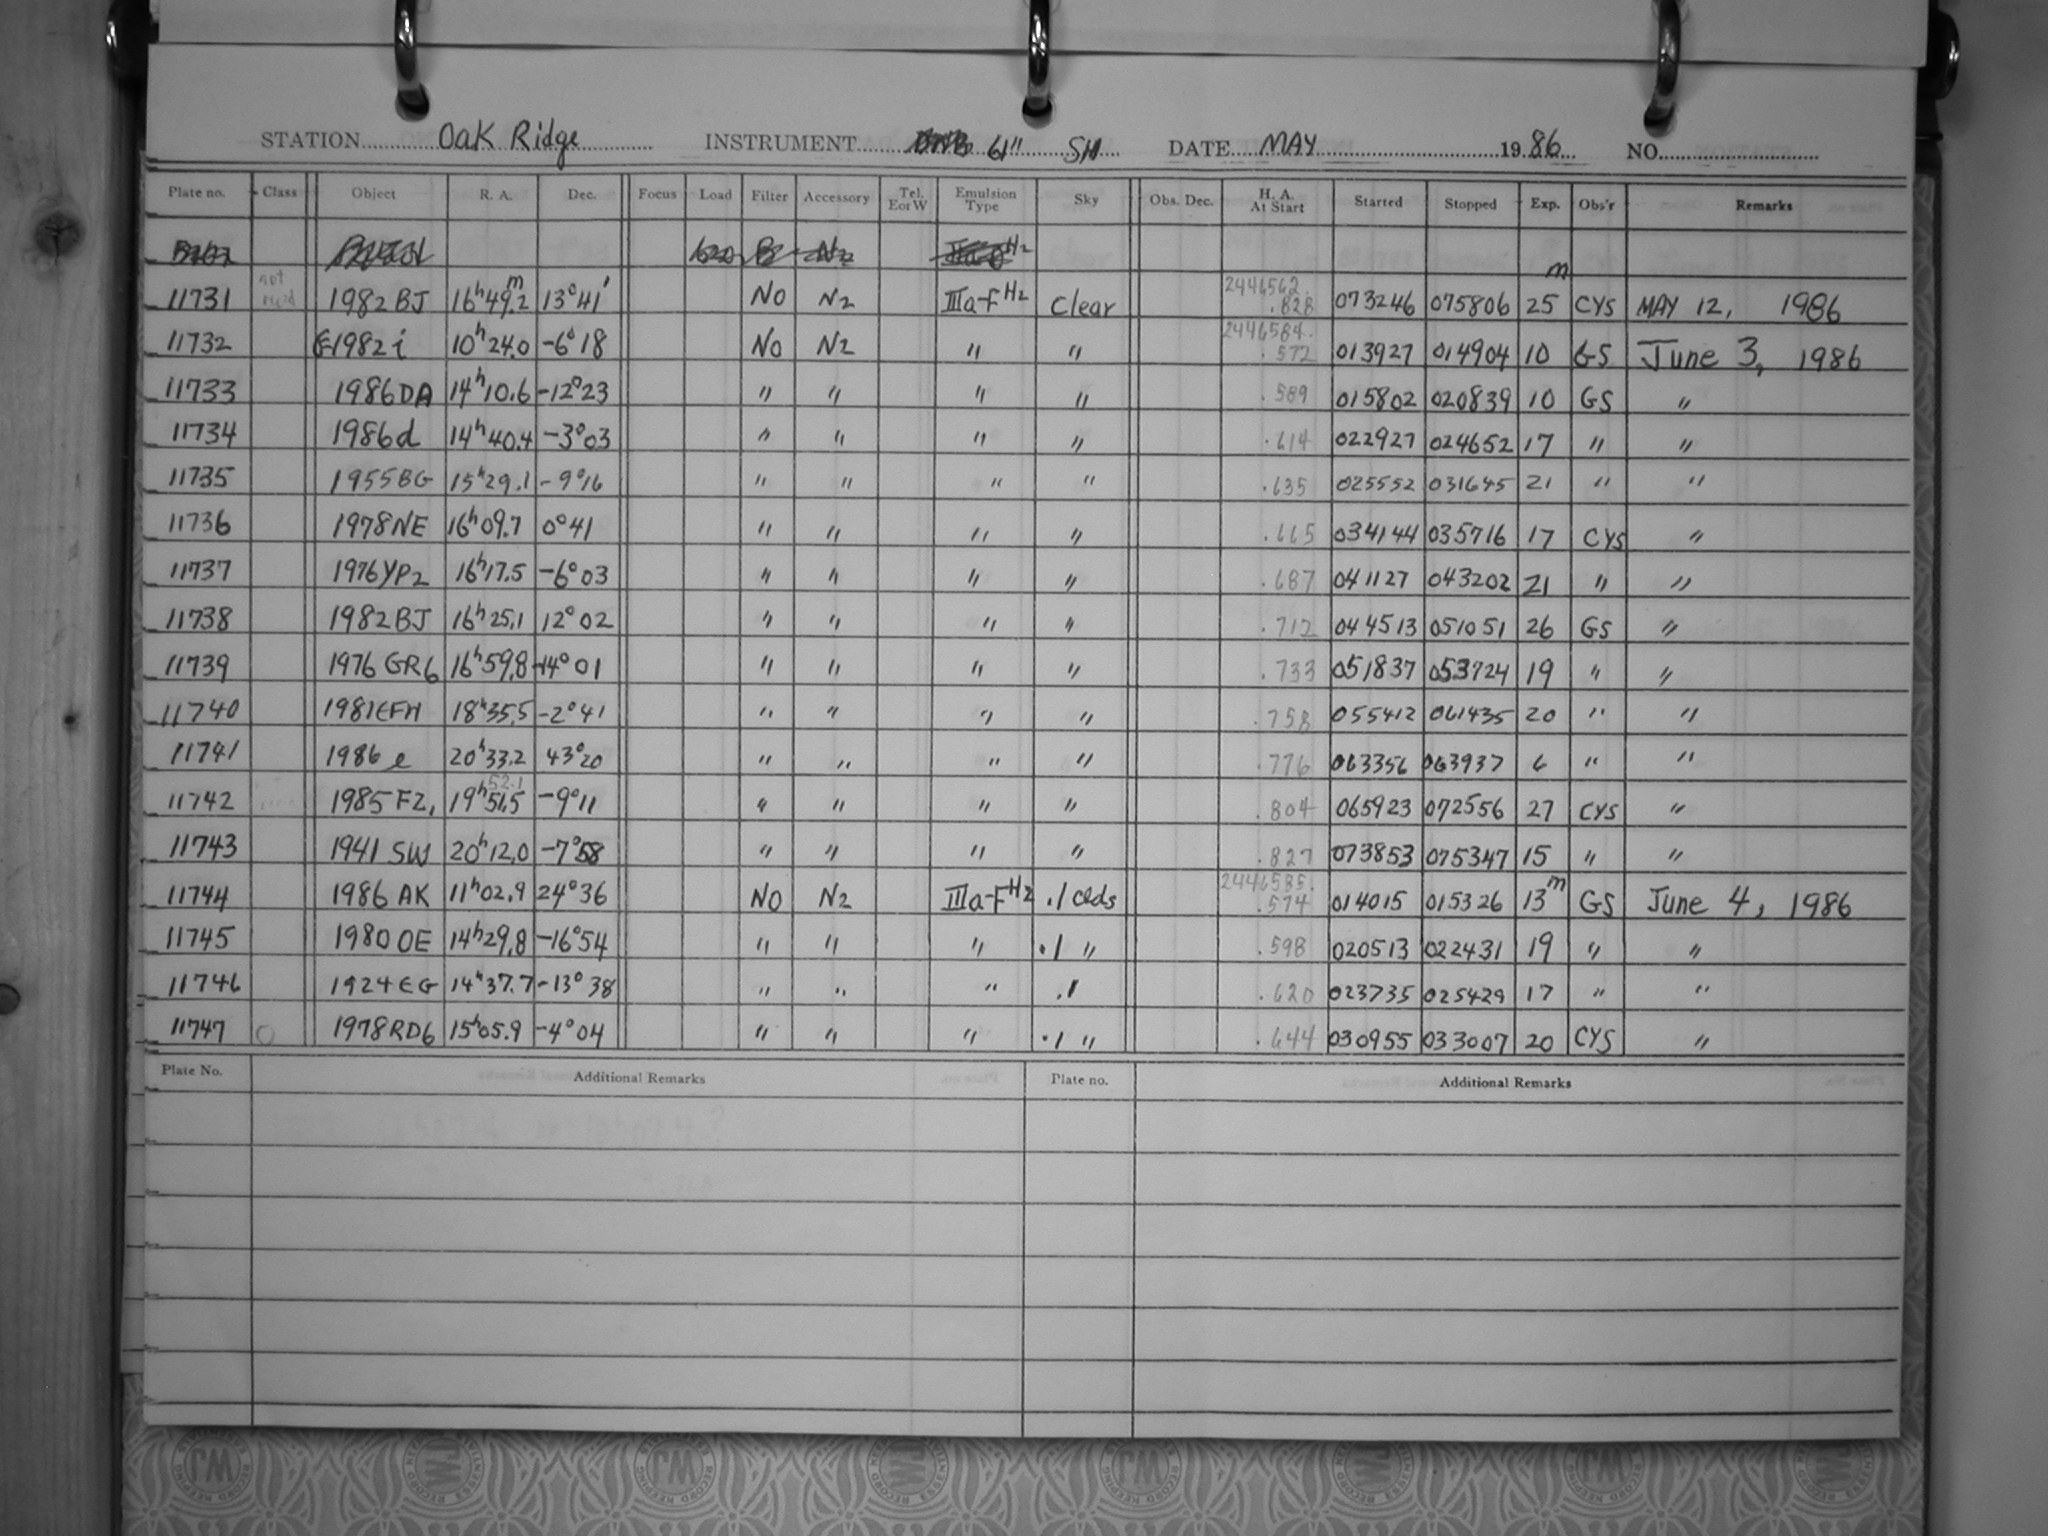 STATION Oak Ridge INSTRUMENT 61" SH DATE MAY 1986 NO.
Plate no. Class Object R. A. Dec. Focus Load Filter Accessory Tel. E or W Emulsion Type Sky Obs. Dec. H. A. At Start Started Stopped Exp. Obs'r Remarks
H2
11731 not 1982 BJ 16h49.2m 13°41' NO N2 IIIa-F H2 Clear 2446562. .828 073246 075806 25m CYS MAY 12, 1986
11732 1982 i 10h24.0 -6°18 NO N2 " " 2446584. .572 013927 014904 10 GS June 3, 1986
11733 1986 DA 14h10.6 -12°23 " " " " .589 015802 020839 10 GS "
11734 1986d 14h40.4 -3°03 " " " " .614 022927 024652 17 " "
11735 1955BG 15h29.1 -9°16 " " " " .635 025552 031645 21 " "
11736 1978NE 16h09.7 0°41 " " " " .665 034144 035716 17 CYS "
11737 1976YP2 16h17.5 -6°03 " " " " .687 041127 043202 21 " "
11738 1982BJ 16h25.1 12°02 " " " " .712 044513 051051 26 GS "
11739 1976 GR6 16h59.8 -14°01 " " " " .733 051837 053724 19 " "
11740 1981EFH 18h35.5 -2°41 " " " " .758 055412 061435 20 " "
11741 1986 e 20h33.2 43°20 " " " " .776 063356 063937 6 " "
52.1
11742 1985 FZ1 19h51.5 -9°11 " " " " .804 065923 072556 27 CYS "
11743 1941 SW 20h12.0 -7°58 " " " " .827 073853 075347 15 " "
11744 1986 AK 11h02.9 24°36 NO N2 IIIa-F H2 .1 clds 2446585. .574 014015 015326 13m GS June 4, 1986
11745 1980 OE 14h29.8 -16°54 " " " .1 " .598 020513 022431 19 " "
11746 1924 EG 14h37.7 -13°38 " " " .1 .620 023735 025429 17 " "
11747 O 1978RD6 15h05.9 -4°04 " " " .1 " .644 030955 033007 20 CYS "
Plate No. Additional Remarks Plate no. Additional Remarks